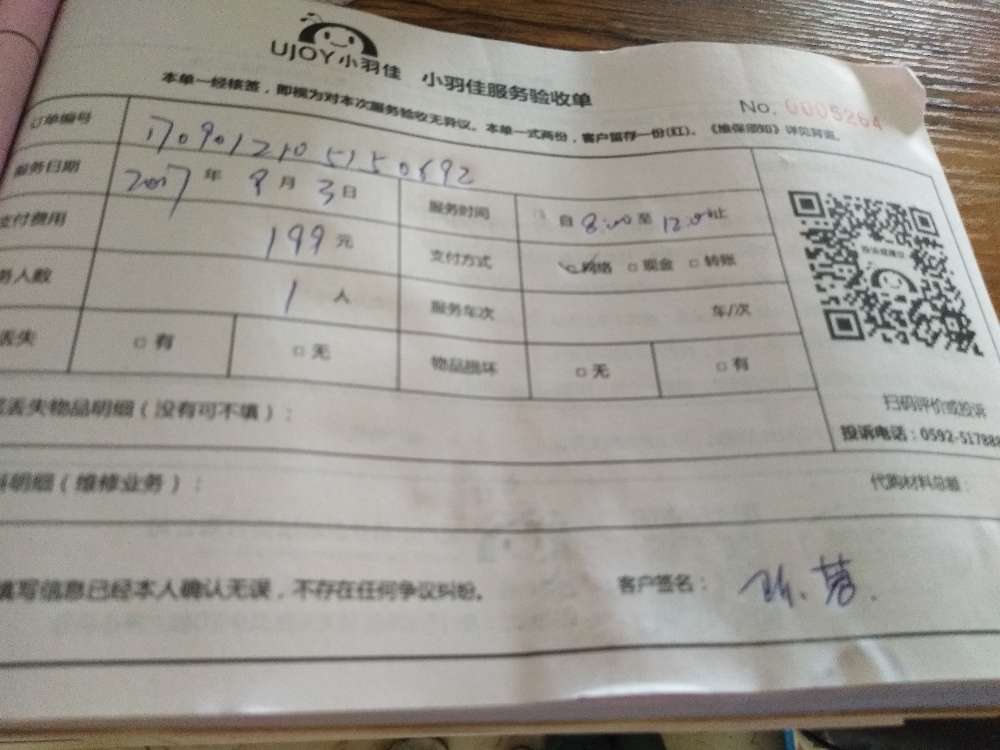 UJOY小羽佳 小羽佳服务验收单
No. 0005264
本单一经核签，即视为对本次服务验收无异议。本单一式两份，客户留存一份(红)。《维保须知》详见背面。
订单编号 1709012105150692
服务日期 2017年 9月 3日 服务时间 自 8:00 至 12:00 止
支付费用 199 元 支付方式 ☑网络 □现金 □转账
务人数 1 人 服务车次 车/次
丢失 □有 □无 物品损坏 □无 □有
丢失物品明细（没有可不填）：
扫码评价或投诉
投诉电话：0592-517888
明细（维修业务）： 代购材料总额：
填写信息已经本人确认无误，不存在任何争议纠纷。 客户签名：